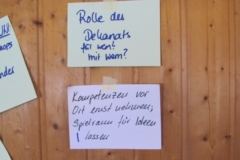 Rolle des
Dekanats
für wen?
mit wem?
Kompetenzen vor
Ort ernst nehmen,
Spielraum für Ideen
lassen